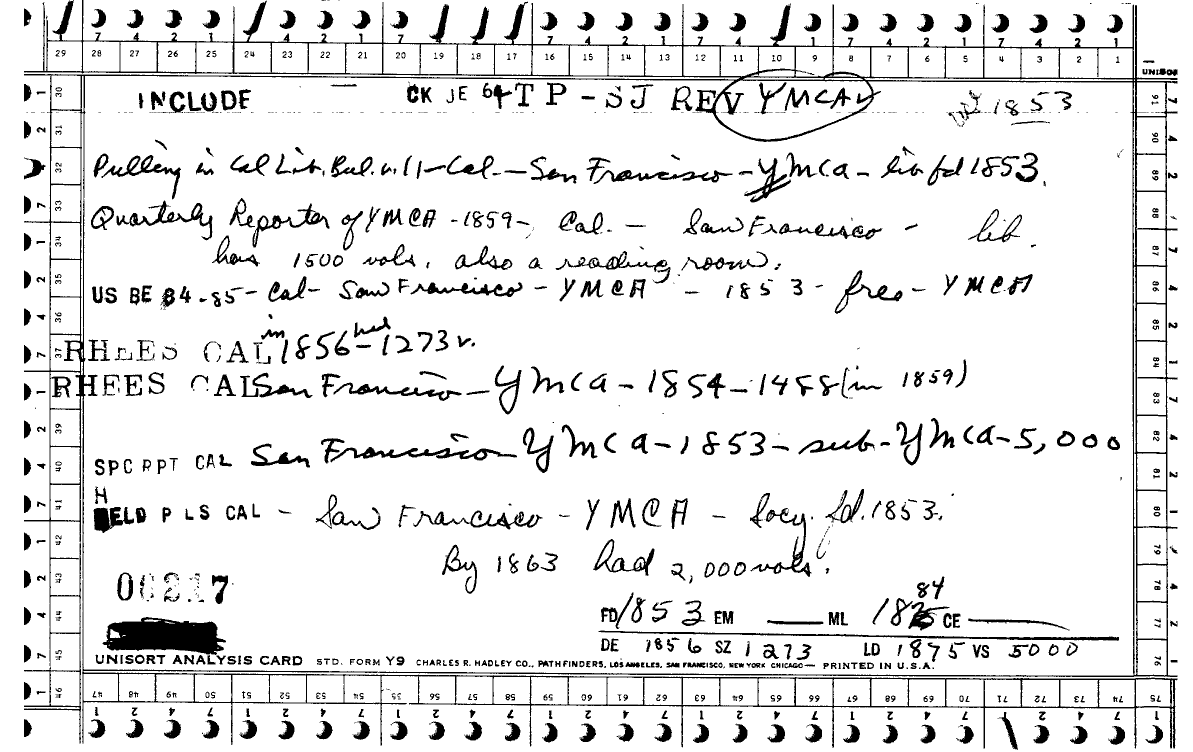 7 4 2 1 7 4 2 1 7 4 2 1 7 4 2 1 7 4 2 1 7 4 2 1 7 4 2 1
29 28 27 26 25 24 23 22 21 20 19 18 17 16 15 14 13 12 11 10 9 8 7 6 5 4 3 2 1
UNISOR
INCLUDE — CK JE 64 TP - SJ REV YMCAL 1853
Pulling in Cal Lib. Bul. v. 11 - Cal. - San Francisco - YMCA - lib fd 1853.
Quarterly Reporter of YMCA - 1859 -, Cal. - San Francisco - lib.
has 1500 vols. also a reading room.
US BE 84-85 - Cal - San Francisco - YMCA - 1853 - free - YMCA
RHEES CAL in 1856 had - 1273 v.
RHEES CAL San Francisco - YMCA - 1854 - 1488 (in 1859)
SPC RPT CAL San Francisco - YMCA - 1853 - sub - YMCA - 5,000
H
ELD PLS CAL - San Francisco - YMCA - Socy. fd. 1853.
By 1863 had 2,000 vols.
06217
84
FD 1853 EM — ML 18 CE —
DE 1856 SZ 1273 LD 1875 VS 5000
UNISORT ANALYSIS CARD STD. FORM Y9 CHARLES R. HADLEY CO., PATHFINDERS, LOS ANGELES, SAN FRANCISCO, NEW YORK CHICAGO — PRINTED IN U.S.A.
30 31 32 33 34 35 36 37 39 40 41 42 43 44 45 46
91 90 89 88 87 86 85 84 83 82 81 80 79 78 77 76 75
47 48 49 50 51 52 53 54 55 56 57 58 59 60 61 62 63 64 65 66 67 68 69 70 71 72 73 74
1 2 4 7 1 2 4 7 1 2 4 7 1 2 4 7 1 2 4 7 1 2 4 7 1 2 4 7